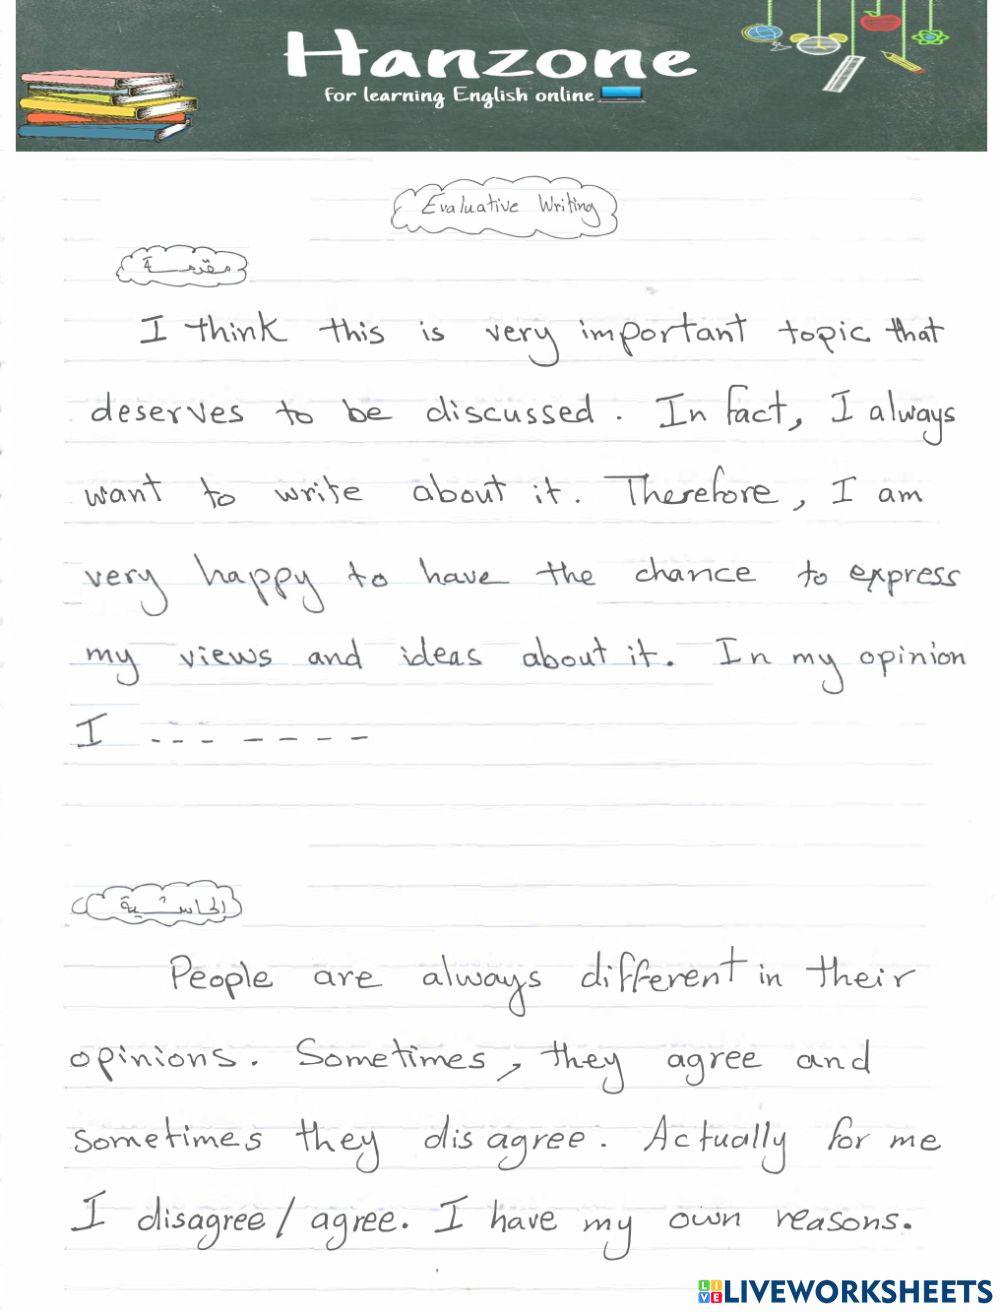 Hanzone
for learning English online
Evaluative Writing
مقدمة
I think this is very important topic that
deserves to be discussed. In fact, I always
want to write about it. Therefore, I am
very happy to have the chance to express
my views and ideas about it. In my opinion
I --- ----
People are always different in their
opinions. Sometimes, they agree and
sometimes they disagree. Actually for me
I disagree / agree. I have my own reasons.
LIVEWORKSHEETS